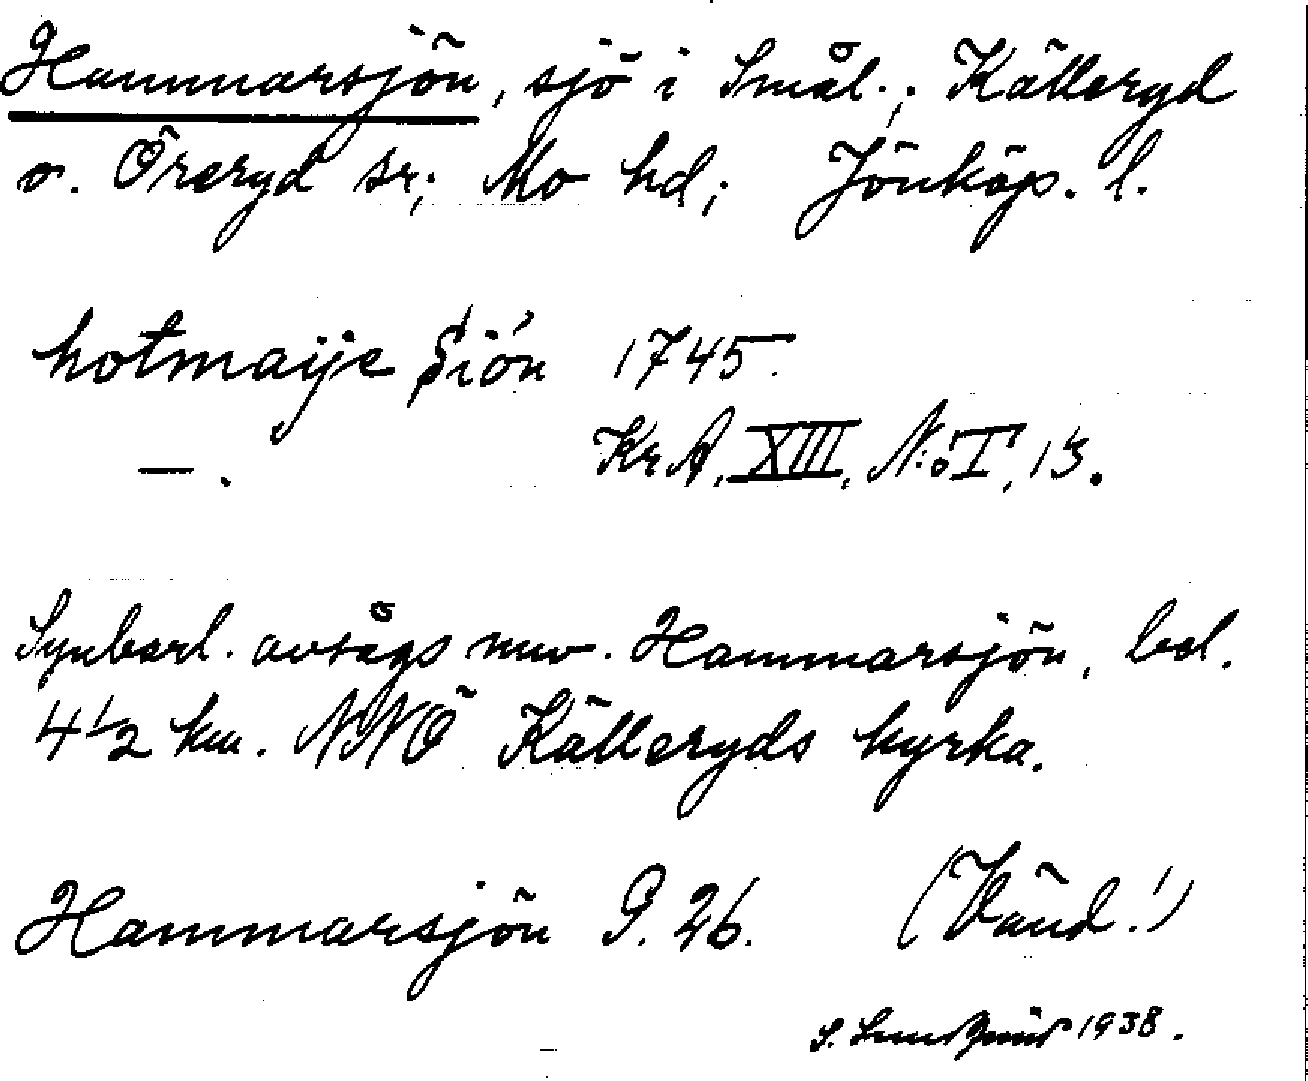 Hammarsjön, sjö i Smål.; Källeryd
o. Öreryd sr; Mo hd; Jönköp. l.
hotmaije Siön 1745.
—. KrA, XIII, N:o I, 13.
Synbarl. avsågs nuv. Hammarsjön, bel.
4 1/2 km. NNÖ Källeryds kyrka.
Hammarsjön G. 26. (Vänd!)
S. 1938.